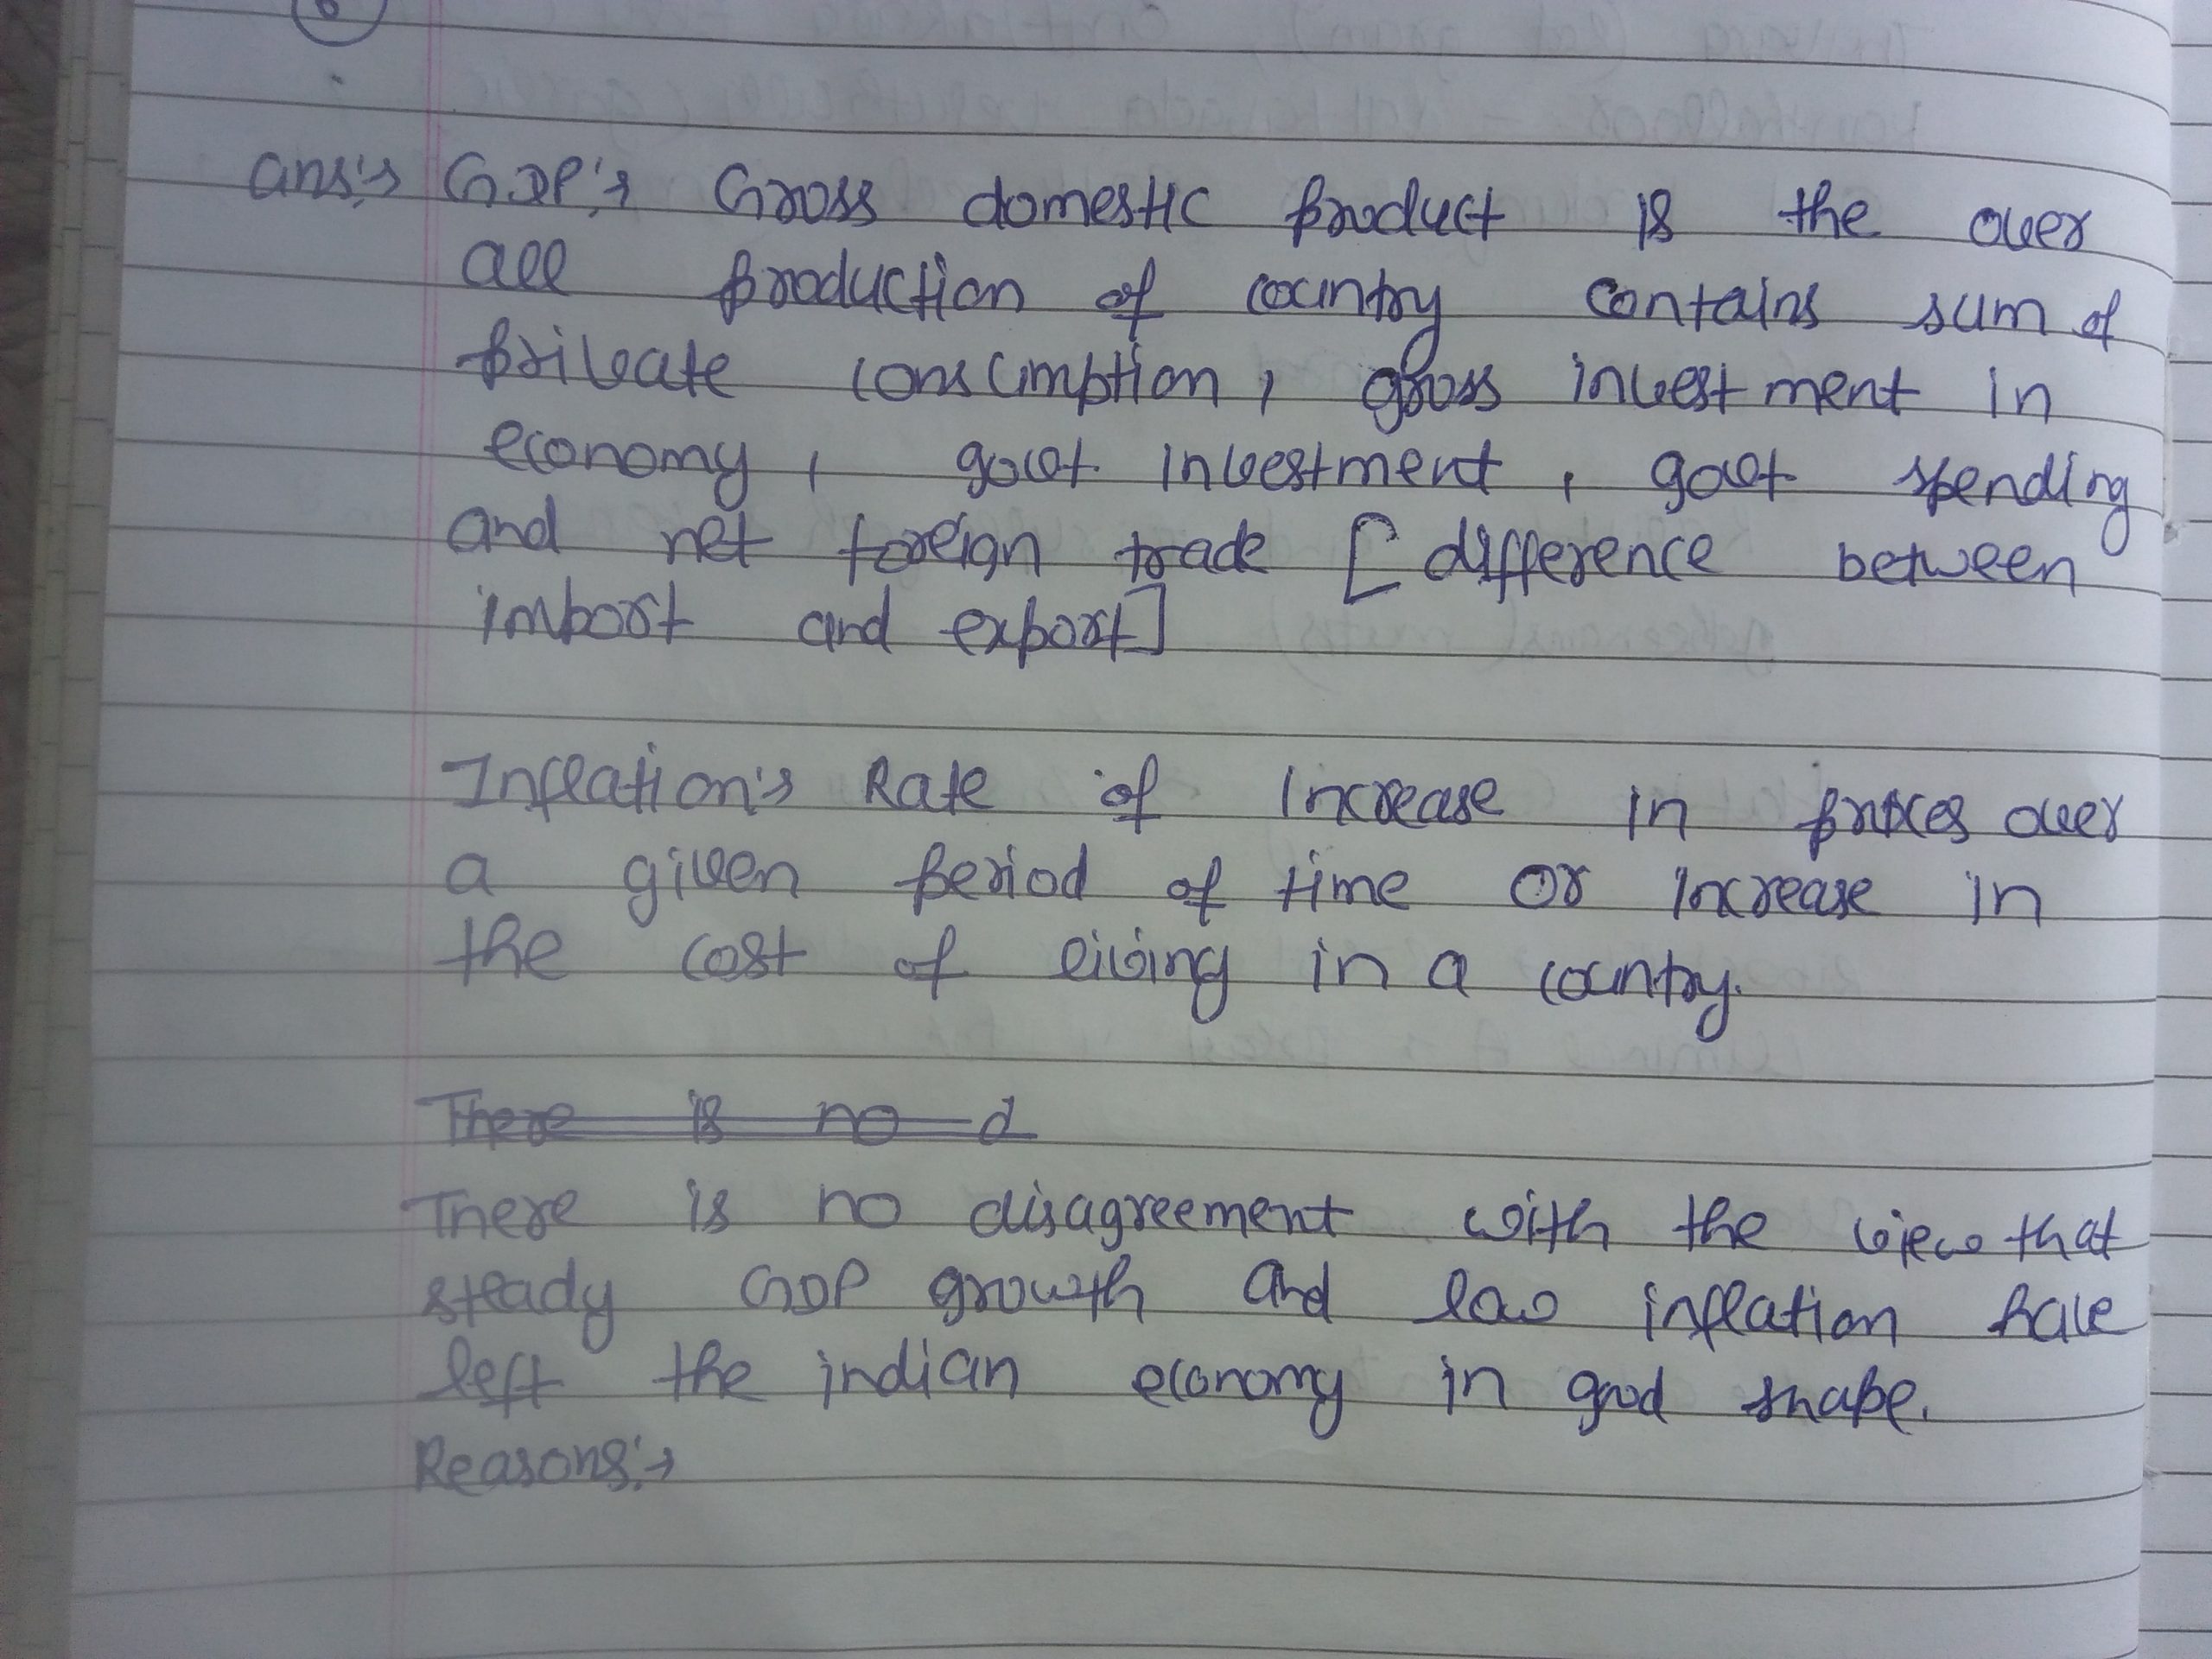 6
Ans:→ GDP:→ Gross domestic product is the over
all production of country contains sum of
private consumption, gross investment in
economy, govt. investment, govt spending
and net foreign trade [difference between
import and export]
Inflation:→ Rate of increase in prices over
a given period of time or increase in
the cost of living in a country.
There is no d
There is no disagreement with the view that
steady GDP growth and low inflation have
left the indian economy in good shape.
Reasons:→